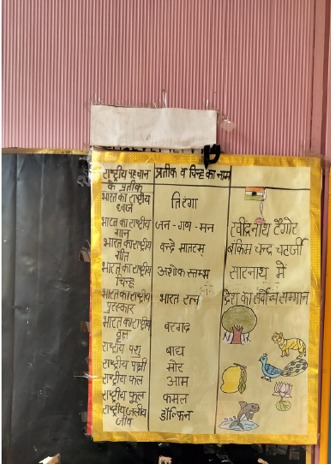 राष्ट्रीय पहचान के प्रतीक प्रतीक व चिन्ह का नाम
भारत का राष्ट्रीय ध्वज तिरंगा
भारत का राष्ट्रीय गान जन-गण-मन रवीन्द्रनाथ टैगोर
भारत का राष्ट्रीय गीत वन्दे मातरम् बंकिम चन्द्र चटर्जी
भारत का राष्ट्रीय चिन्ह अशोक स्तम्भ सारनाथ में
भारत का राष्ट्रीय पुरस्कार भारत रत्न देश का सर्वोच्च सम्मान
भारत का राष्ट्रीय वृक्ष बरगद
राष्ट्रीय पशु बाघ
राष्ट्रीय पक्षी मोर
राष्ट्रीय फल आम
राष्ट्रीय फूल कमल
राष्ट्रीय जलीय जीव डॉल्फिन